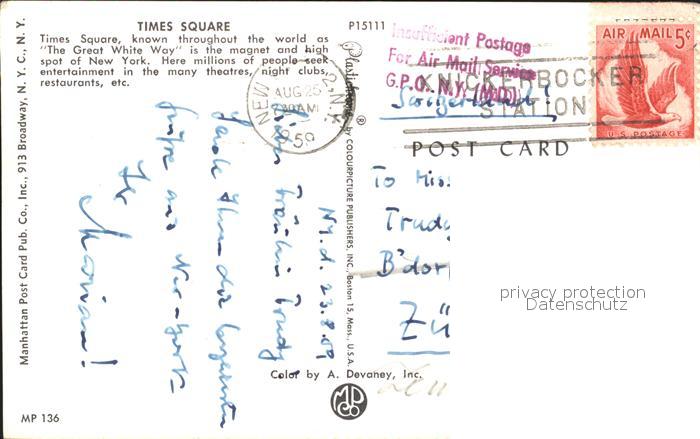 TIMES SQUARE
Times Square, known throughout the world as
"The Great White Way" is the magnet and high
spot of New York. Here millions of people seek
entertainment in the many theatres, night clubs,
restaurants, etc.
P15111
Insufficient Postage
For Air Mail Service
G.P.O. N.Y. (M.D.)
AIR MAIL 5¢
U.S. POSTAGE
NEW
AUG 25
AM
1959
KNICKERBOCKER
STATION
Switzerland
POST CARD
To Miss
Trudy
B'dor
Zü
privacy protection
Datenschutz
N.Y. d. 23.8.59
Fräulein Trudy
Sende Ihnen die
Grüsse aus New-York
Ihr
Marian!
Plastichrome ® by COLOURPICTURE PUBLISHERS, INC., Boston 15, Mass., U.S.A.
Manhattan Post Card Pub. Co., Inc., 913 Broadway, N. Y. C., N. Y.
Color by A. Devaney, Inc.
MP
CO
MP 136